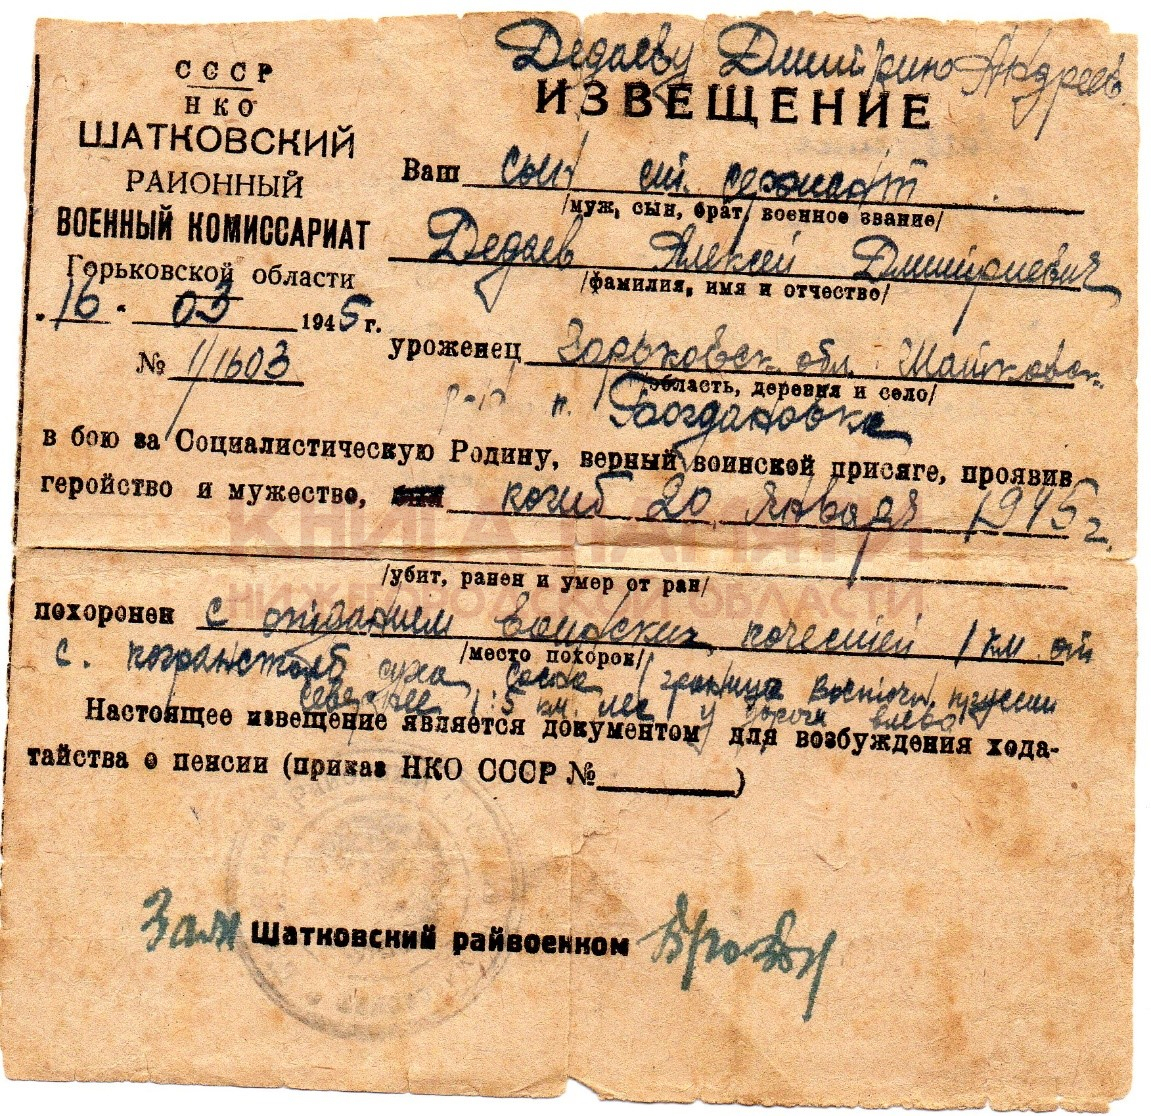 Дедаеву Дмитрию Андреев.
СССР
НКО
ШАТКОВСКИЙ
РАИОННЫЙ
ВОЕННЫЙ КОМИССАРИАТ
Горьковской области
"16" 03 1945 г.
№ 1/1603
ИЗВЕЩЕНИЕ
Ваш сын ст. сержант
/муж, сын, брат, военное звание/
Дедаев Алексей Дмитриевич
/фамилия, имя и отчество/
уроженец Горьковск. обл. Шатковск.
/область, деревня и село/
р-на Богдановка
в бою за Социалистическую Родину, верный воинской присяге, проявив
геройство и мужество, погиб 20 января 1945 г.
/убит, ранен и умер от ран/
похоронен с отданием воинских почестей 1 км. от
/место похорон/
с. погранстолб суха /граница Восточн. Пруссии
севернее 1:5 км. лес у дороги влево
Настоящее извещение является документом для возбуждения хода-
тайства о пенсии (приказ НКО СССР № )
Зам Шатковский райвоенком
КНИГА ПАМЯТИ
НИЖЕГОРОДСКОЙ ОБЛАСТИ